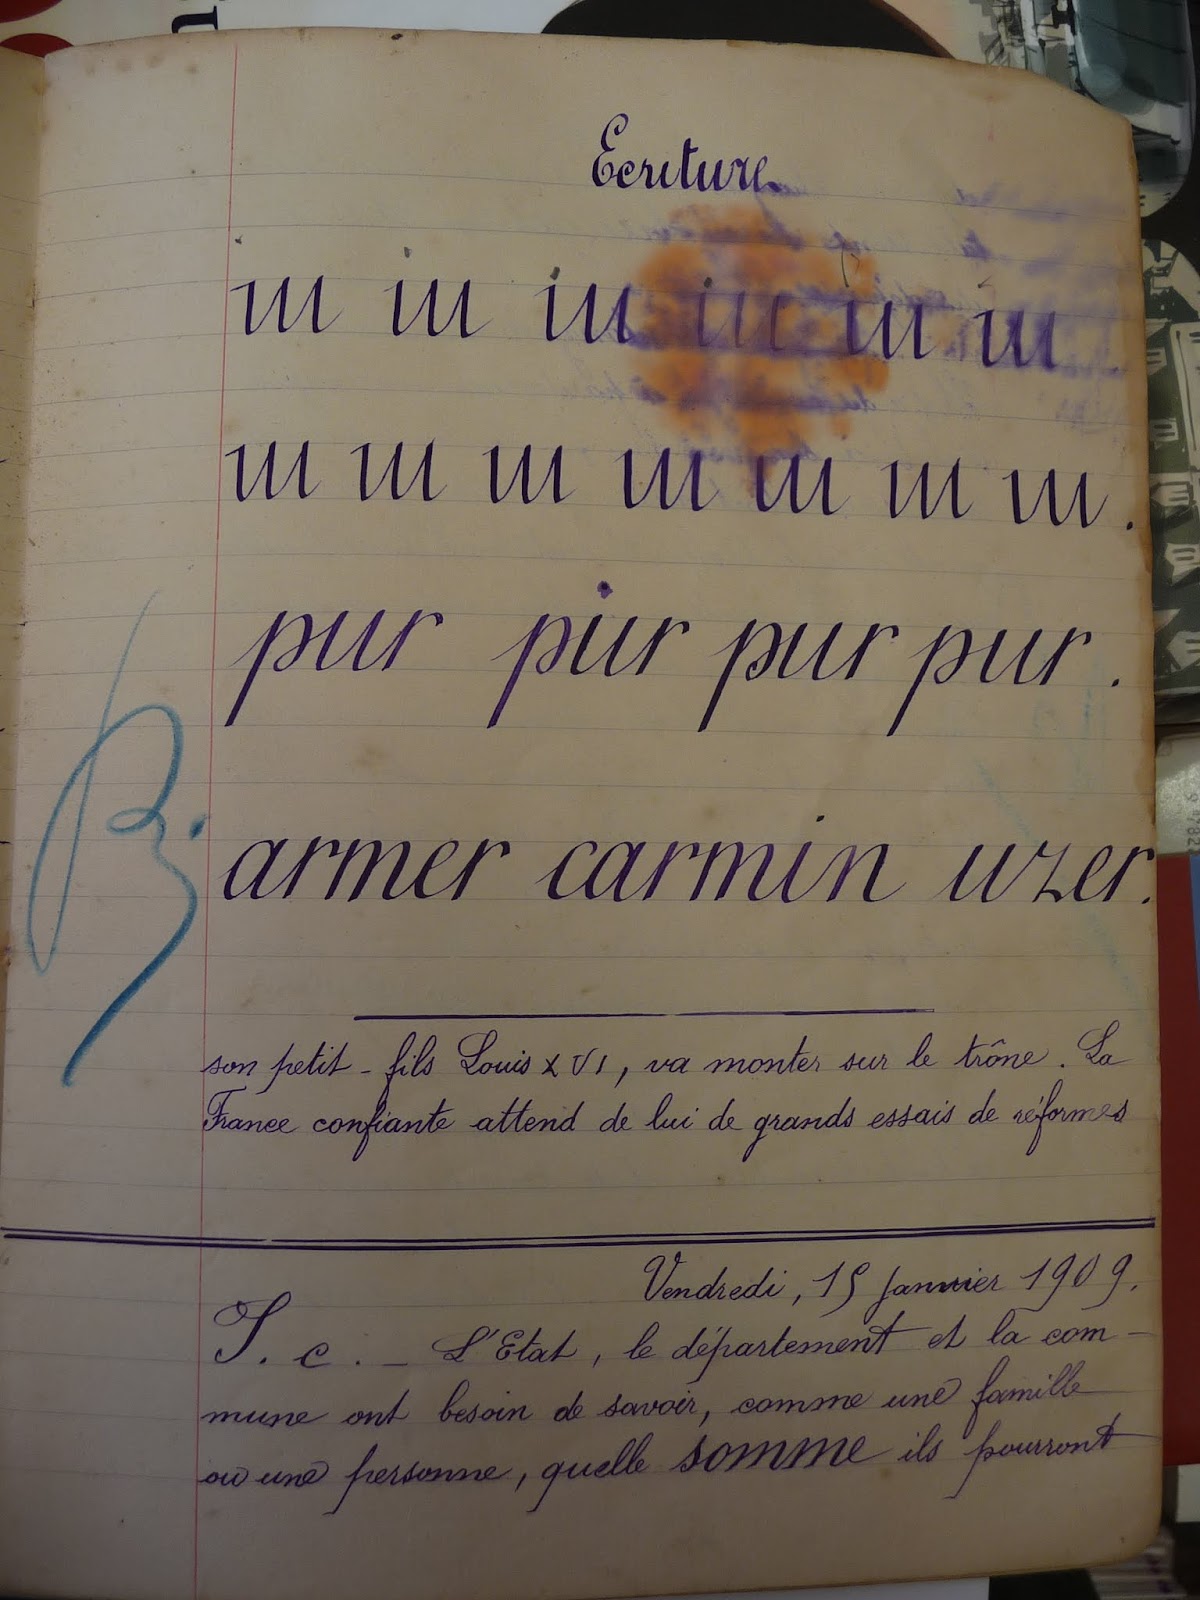 Ecriture
iu iu iu iu iu iu
ııı ııı ııı ııı ııı ııı ııı.
pur piur pur pur.
B. armer carmin uzer.
son petit-fils Louis XVI, va monter sur le trône. La
France confiante attend de lui de grands essais de réformes
Vendredi, 15 Janvier 1909.
I. c. - L'Etat, le département et la com-
mune ont besoin de savoir, comme une famille
ou une personne, quelle somme ils pourront